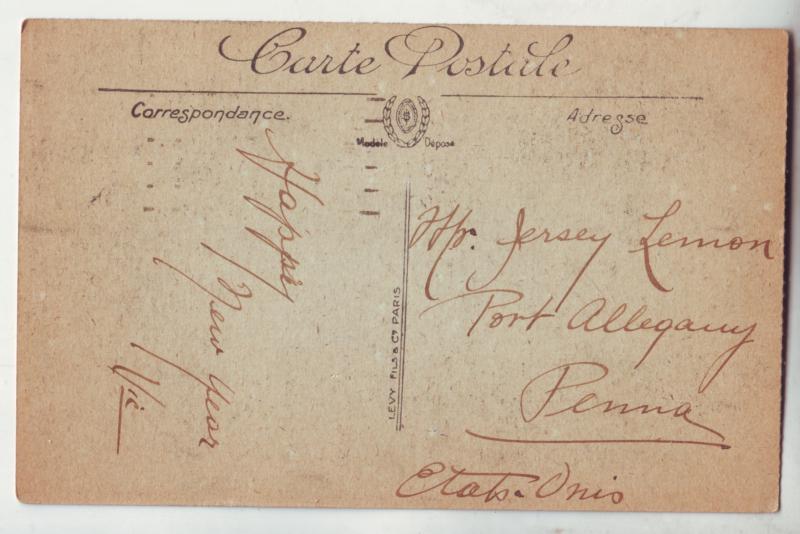 Carte Postale
Correspondance.
Adresse
Modèle Déposé
Happy
New Year
Vic
LEVY FILS & Cie PARIS
Mr. Jersey Lemon
Port Allegany
Penna
Etats-Unis